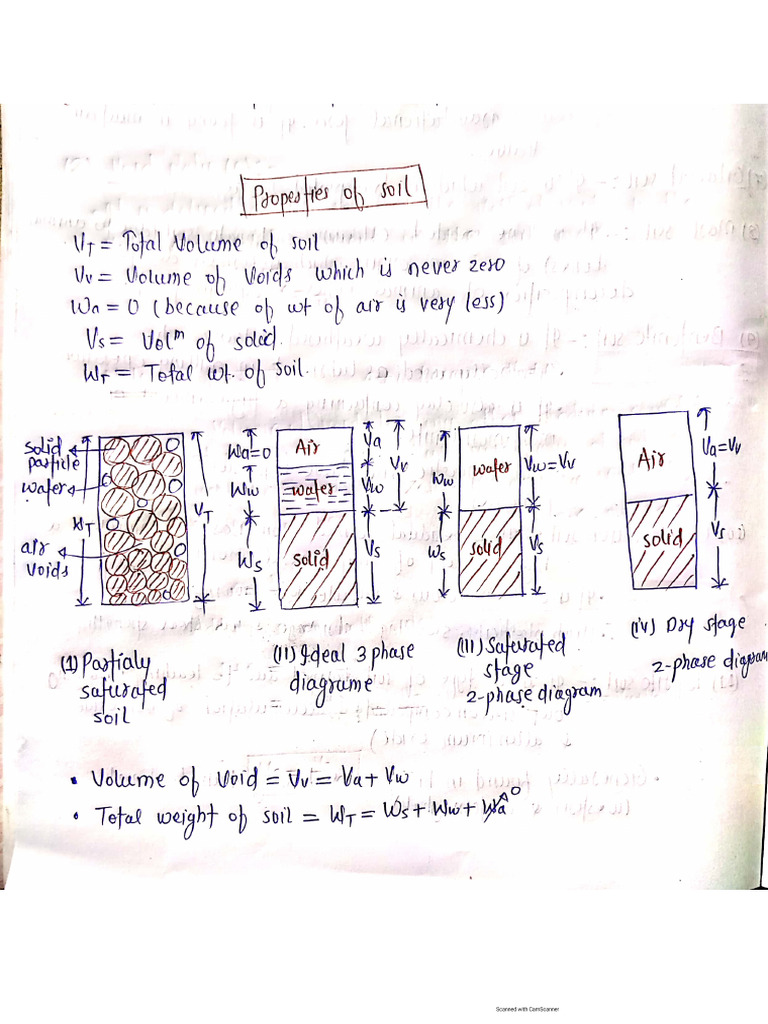 Properties of soil
VT = Total Volume of soil
Vv = Volume of Voids which is never zero
Wa = 0 (because of wt of air is very less)
Vs = Volᵐ of solid.
WT = Total wt. of soil.
solid particle
water
air voids
WT
VT
Wa=0
Ww
Ws
Air
water
solid
Va
Vw
Vs
Vv
Ww
Ws
water
solid
Vw=Vv
Vs
Air
solid
Va=Vv
Vs
(1) Partialy
saturated
soil
(II) Ideal 3 phase
diagrame
(III) Saturated
stage
2-phase diagram
(iv) Dry stage
2-phase diagram
• Volume of Void = Vv = Va + Vw
• Total weight of soil = WT = Ws + Ww + Wa 0
Scanned with CamScanner